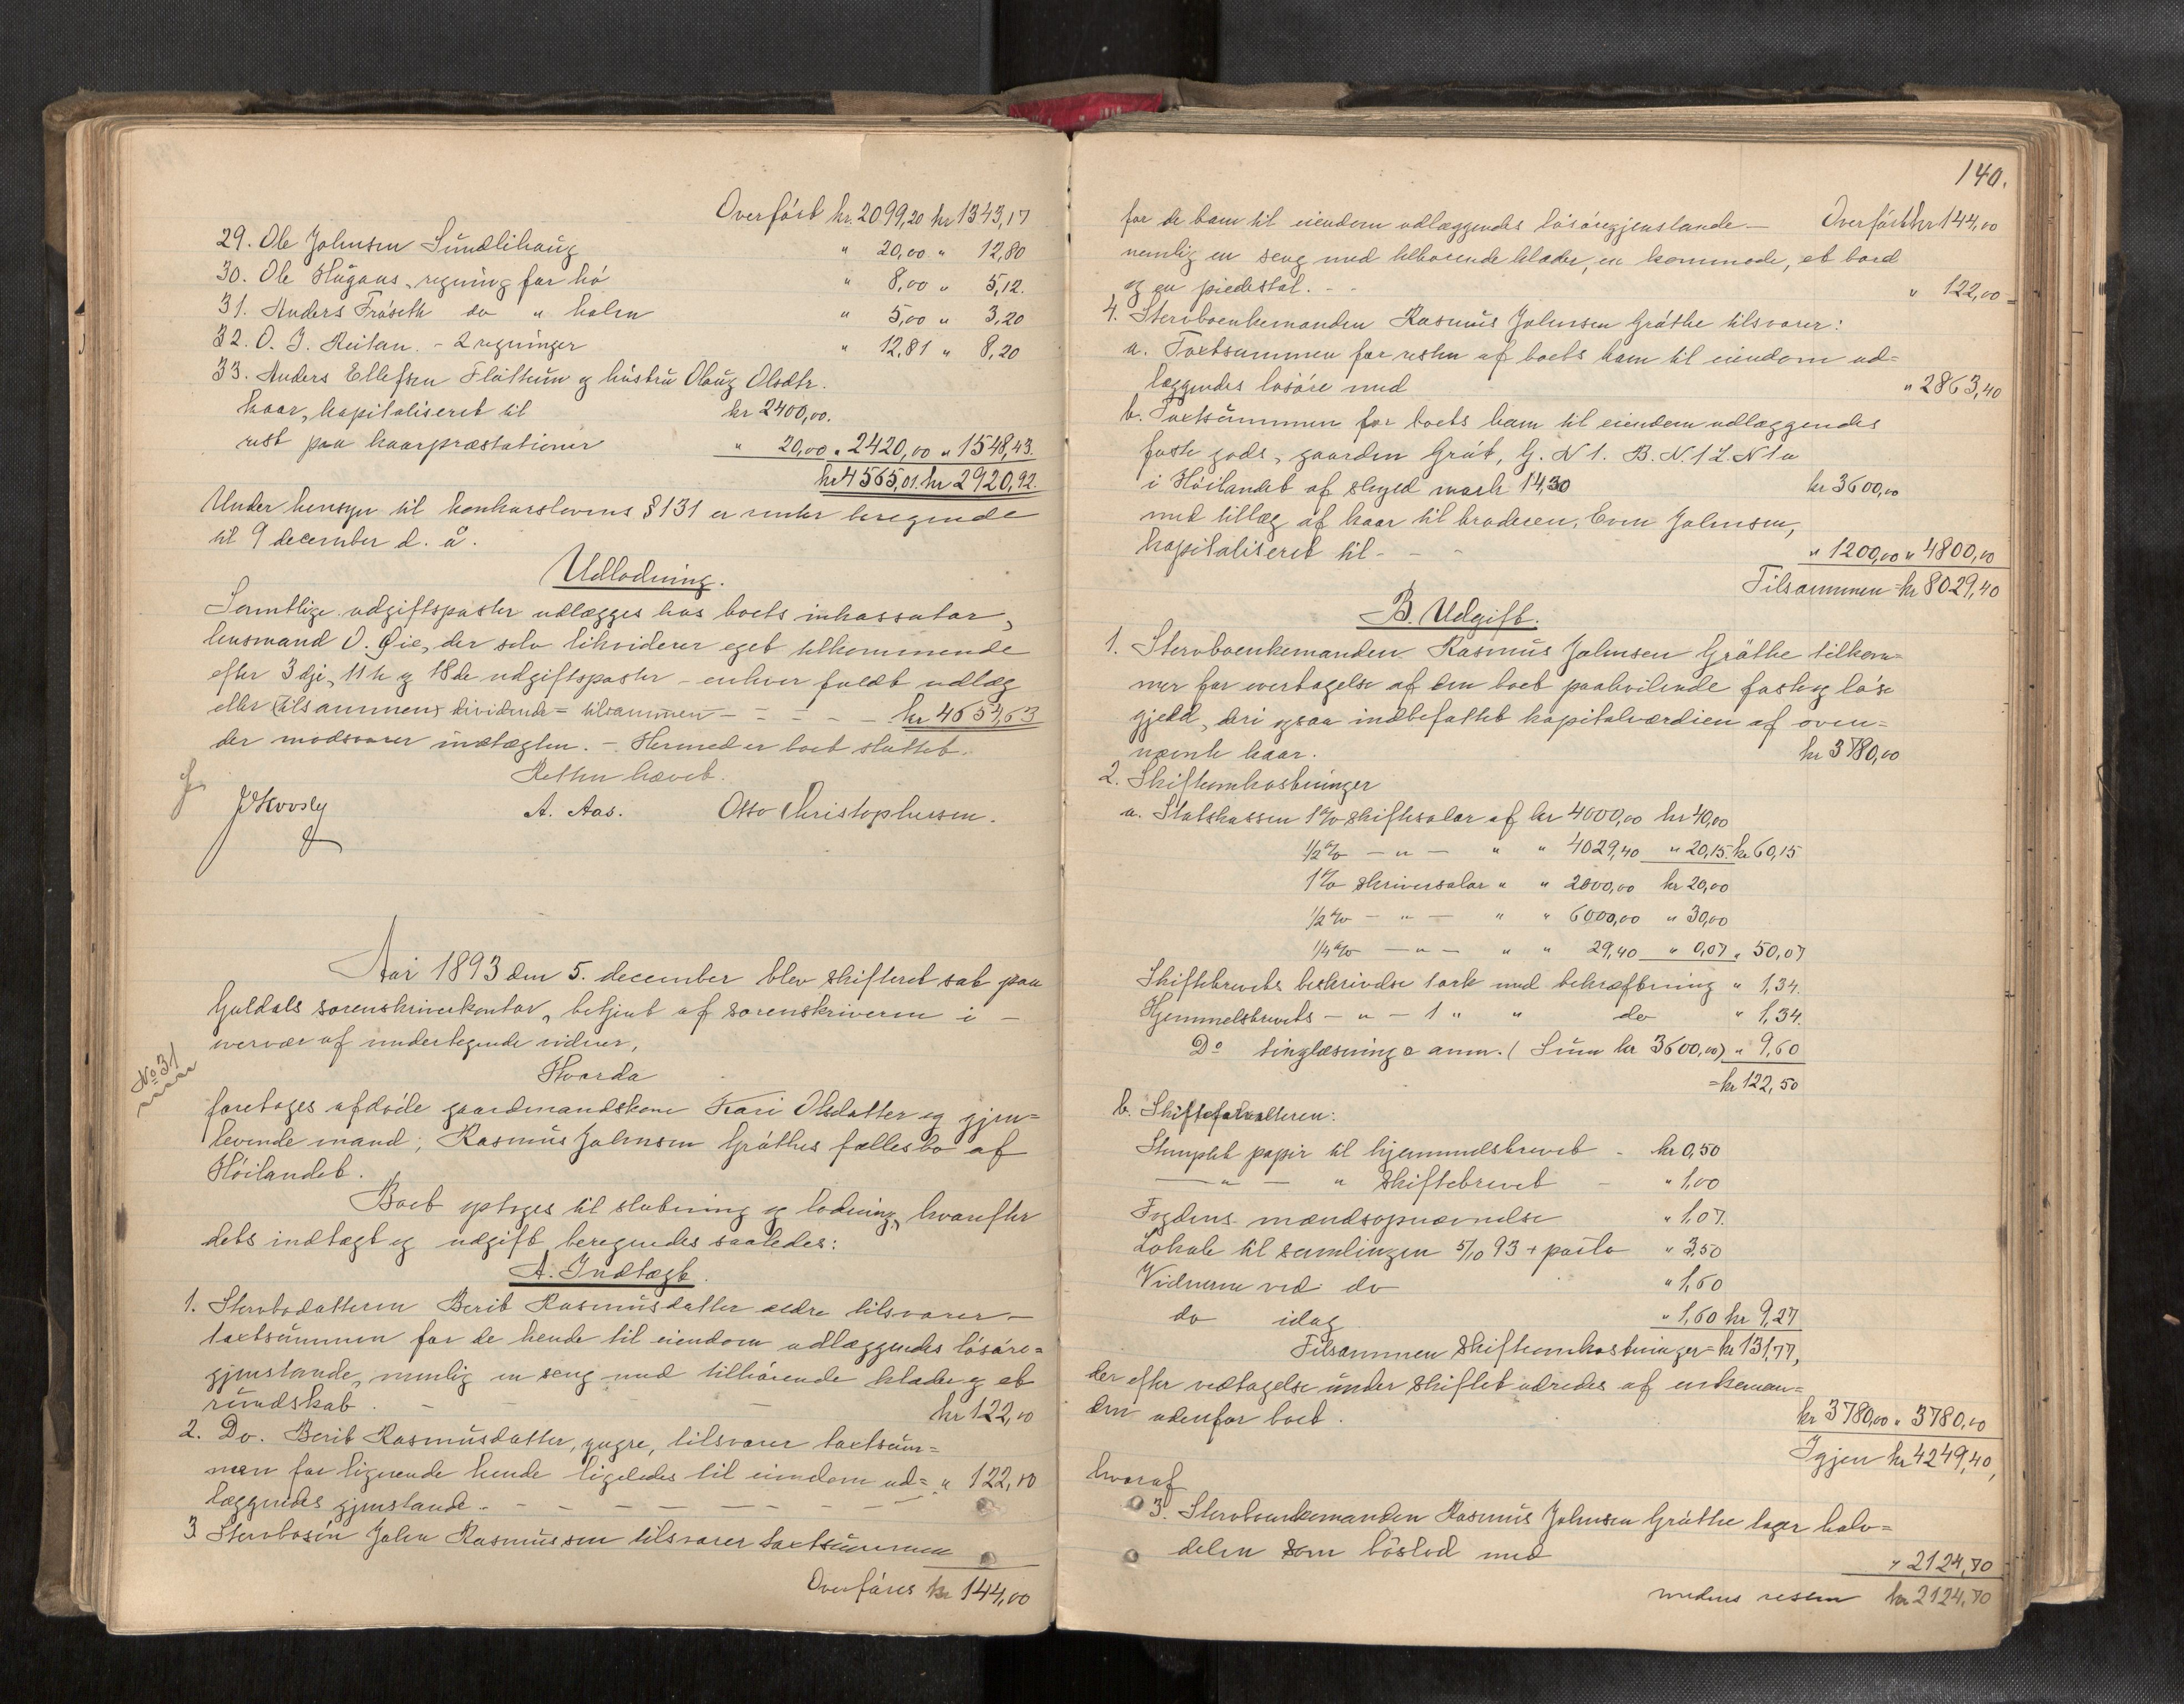 Overført kr. 2099,20 kr 1343,17
29. Ole Johnsen Sundlihaug " 20,00 " 12,80
30. Ole Hugaas, regning for hø " 8,00 " 5,12.
31. Anders Frøseth do " halm " 5,00 " 3,20
32. O. J. Reitan. - 2 regninger " 12,81 " 8,20
33. Anders Ellefsen Flottum og hustru Olaug Olsdtr.
kaar, kapitaliseret til kr 2400,00.
rest paa kaarpræstationer " 20,00 " 2420,00 " 1548,43.
kr 4565,01. kr 2920,92.
Under hensyn til konkurslovens § 131 er renter beregnede
til 9 december d. å.
Udlodning.
Samtlige udgiftsposter udlægges hos boets inkassator,
lensmand O. Øie, der selv likviderer eget tilkommende
efter 3dje, 11te og 18de udgiftsposter - enhver fuldt udlæg
eller (tilsammen) dividende = tilsammen - - - - - kr 4654,63
der modsvarer indtægten. - Hermed er boet sluttet.
Retten hævet.
A. Aas. Otto Christophersen.
Aar 1893 den 5. december blev skifteret sat paa
Guldals sorenskriverkontor, betjent af sorenskriveren i -
overvær af undertegnede vidner,
No 31
Hvorda
foretoges afdøde gaardmandskone Kari Olsdatter og gjen=
levende mand, Rasmus Johnsen Gråthes fællesbo af
Höilandet.
Boet optoges til slutning og lodning, hvorefter
dets indtægt og udgift beregnedes saaledes:
A. Indtægt.
1. Stervbodatteren Berit Rasmusdatter ældre tilsvarer -
taxtsummen for de hende til eiendom udlæggendes løsøre=
gjenstande, nemlig en seng med tilhørende klæder og et
rundskab. - - - kr 122,00
2. Do. Berit Rasmusdatter, yngre, tilsvarer taxtsum=
men for lignende hende ligeledes til eiendom ud= " 122,00
læggendes gjenstande. - - - - - -
3. Stervbosön John Rasmussen tilsvarer taxtsummen
Overføres kr 144,00
140.
for de ham til eiendom udlæggendes løsøregjenstande. - Overført kr 144,00
nemlig en seng med tilhørende klæder, en kommode, et bord
og en piedestal. - - " 122,00 =
4. Stervboenkemanden Rasmus Johnsen Gråthe tilsvarer:
a. Taxtsummen for resten af boets ham til eiendom ud=
læggendes løsøre med " 2863,40
b. Taxtsummen for boets ham til eiendom udlæggendes
faste gods, gaarden Gråt, G. N 1. B. N. 1 L. N 1a
i Höilandet af skyld mark 14,30 kr 3600,00
med tillæg af kaar til broderen, Even Johnsen,
kapitaliseret til - - - " 1200,00 " 4800,00
Tilsammen kr 8029,40
B. Udgift.
1. Stervboenkemanden Rasmus Johnsen Gråthe tilkom=
mer for overtagelse af den boet paahvilende faste og løse
gjeld, deri ogsaa indbefattet kapitalværdien af oven=
nævnte kaar. kr 3780,00
2. Skifteomkostninger
a. Statskassen 1 % skiftesalær af kr 4000,00 kr 40,00
1/2 % - " - " " 4029,40 " 20,15. kr 60,15
1 % skriversalær " " 2000,00 kr 20,00
1/2 % - " - " " 6000,00 " 30,00
1/4 % - " - " " 29,40 " 0,07 " 50,07
Skiftebrevets beskrivelse 1 ark med bekræftning " 1,34.
Hjemmelsbrevets - " - 1 " " do " 1,34.
Do tinglæsning a anm. (Sum kr 3600,00) " 9,60
= kr 122,50
b. Skifteforvalteren:
Stemplet papir til hjemmelsbrevet - kr 0,50
- " - " skiftebrevet - " 1,00
Fogdens mændsopnævnelse " 1,07.
Lokale til samlingen 5/10 93 + porto " 3,50
Vidnerne ved do " 1,60
do idag " 1,60 kr 9,27
Tilsammen skifteomkostninger = kr 131,77,
der efter vedtagelse under skiftet udredes af enkeman=
den udenfor boet. kr 3780,00 " 3780,00
Igjen kr 4249,40,
hvoraf
3. Stervboenkemanden Rasmus Johnsen Gråthe tager halv=
delen som böslod med " 2124,70
medens resten kr 2124,70